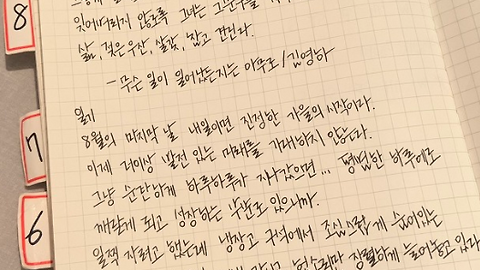 8
잊어버리지 않도록 그녀는 그
삶, 젖은 우산, 살갗, 찾고 견딘다.
- 무슨 일이 일어났는지는 아무도 / 김영하
일기
8월의 마지막 날 내일이면 진정한 가을의 시작이다.
7
이제 더이상 발전 있는 미래를 기대하지 않는다.
그냥 순탄하게 하루하루가 지나갔으면... 평범한 하루에도
깨닫게 되고 성장하는 부분도 있으니까.
6
일찍 자려고 했는데 냉장고 구석에서 조심스럽게 숨어있는
장렬하게 늘어놓고 있다